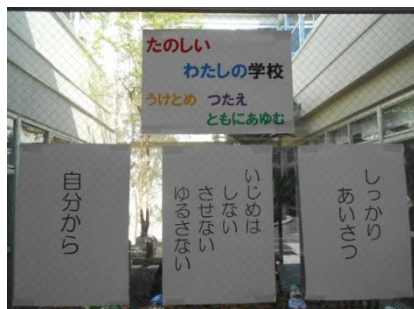 たのしい
わたしの学校
うけとめ つたえ
ともにあゆむ
しっかり
あいさつ
いじめは
しない
させない
ゆるさない
自分から